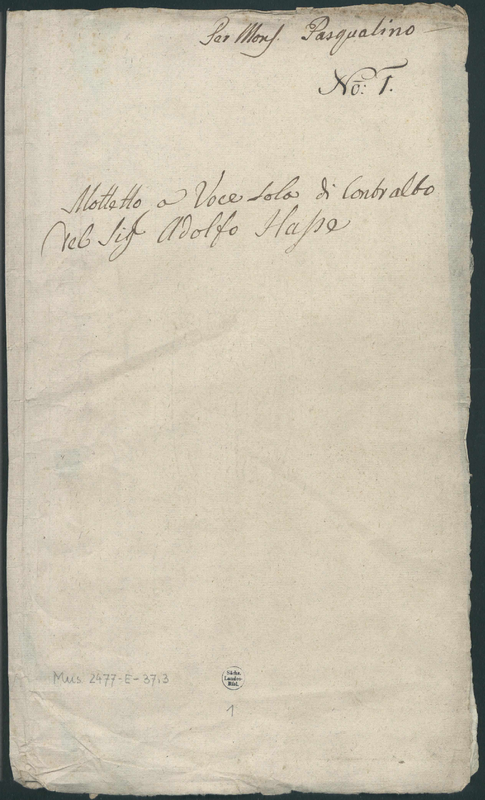 Per Mons. Pasqualino
No: 1.
Mottetto a Voce sola di Contralto
Del Sigr Adolfo Hasse
Mus 2477-E-37,3
Sächs.
Landes-
Bibl.
1